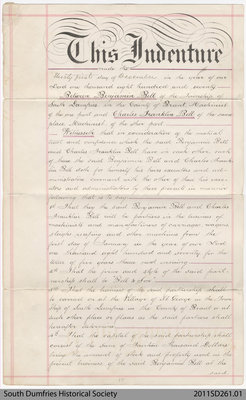 This Indenture
made the
Thirty first day of December in the year of our
Lord one thousand eight hundred and seventy
Between Benjamin Bell of the Township of
South Dumfries in the County of Brant Machinist
of the one part and Charles Franklin Bell of the same
place Machinist of the other part
Witnesseth that in consideration of the mutual
trust and confidence which the said Benjamin Bell
and Charles Franklin Bell have in each other each
of them the said Benjamin Bell and Charles Frank-
lin Bell doth for himself his heirs executors and ad-
ministrators covenant with the other of them his execu-
tors and administrators by these presents in manner
following that is to say
That they the said Benjamin Bell and Charles
Franklin Bell will be partners in the business of
machinists and manufacturers of
reaping and other machines from the
first day of January in the year of our Lord
one thousand eight hundred and seventy for the
term of five years then next ensuing
That the firm and style of the said part-
nership shall be Bell & Son
That the business of the said partnership shall
be carried on at the Village of St George in the Town-
ship of South Dumfries in the County of Brant or at
such other place or places as the said partners shall
hereafter determine
That the capital of the said partnership shall
consist of the sum of Thousand Dollars
being the amount of stock and property used in the
present business of the said Benjamin Bell at the
said
South Dumfries Historical Society
2011SD261.01